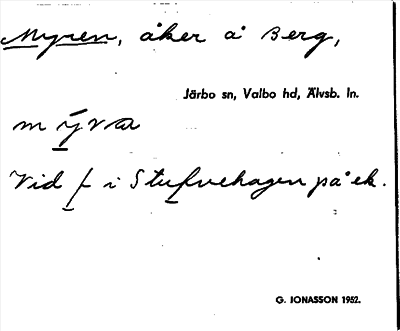 Myren, åker å Berg,
Järbo sn, Valbo hd, Älvsb. ln.
mýva
Vid f i Stufvehagen på ek.
G. JONASSON 1952.